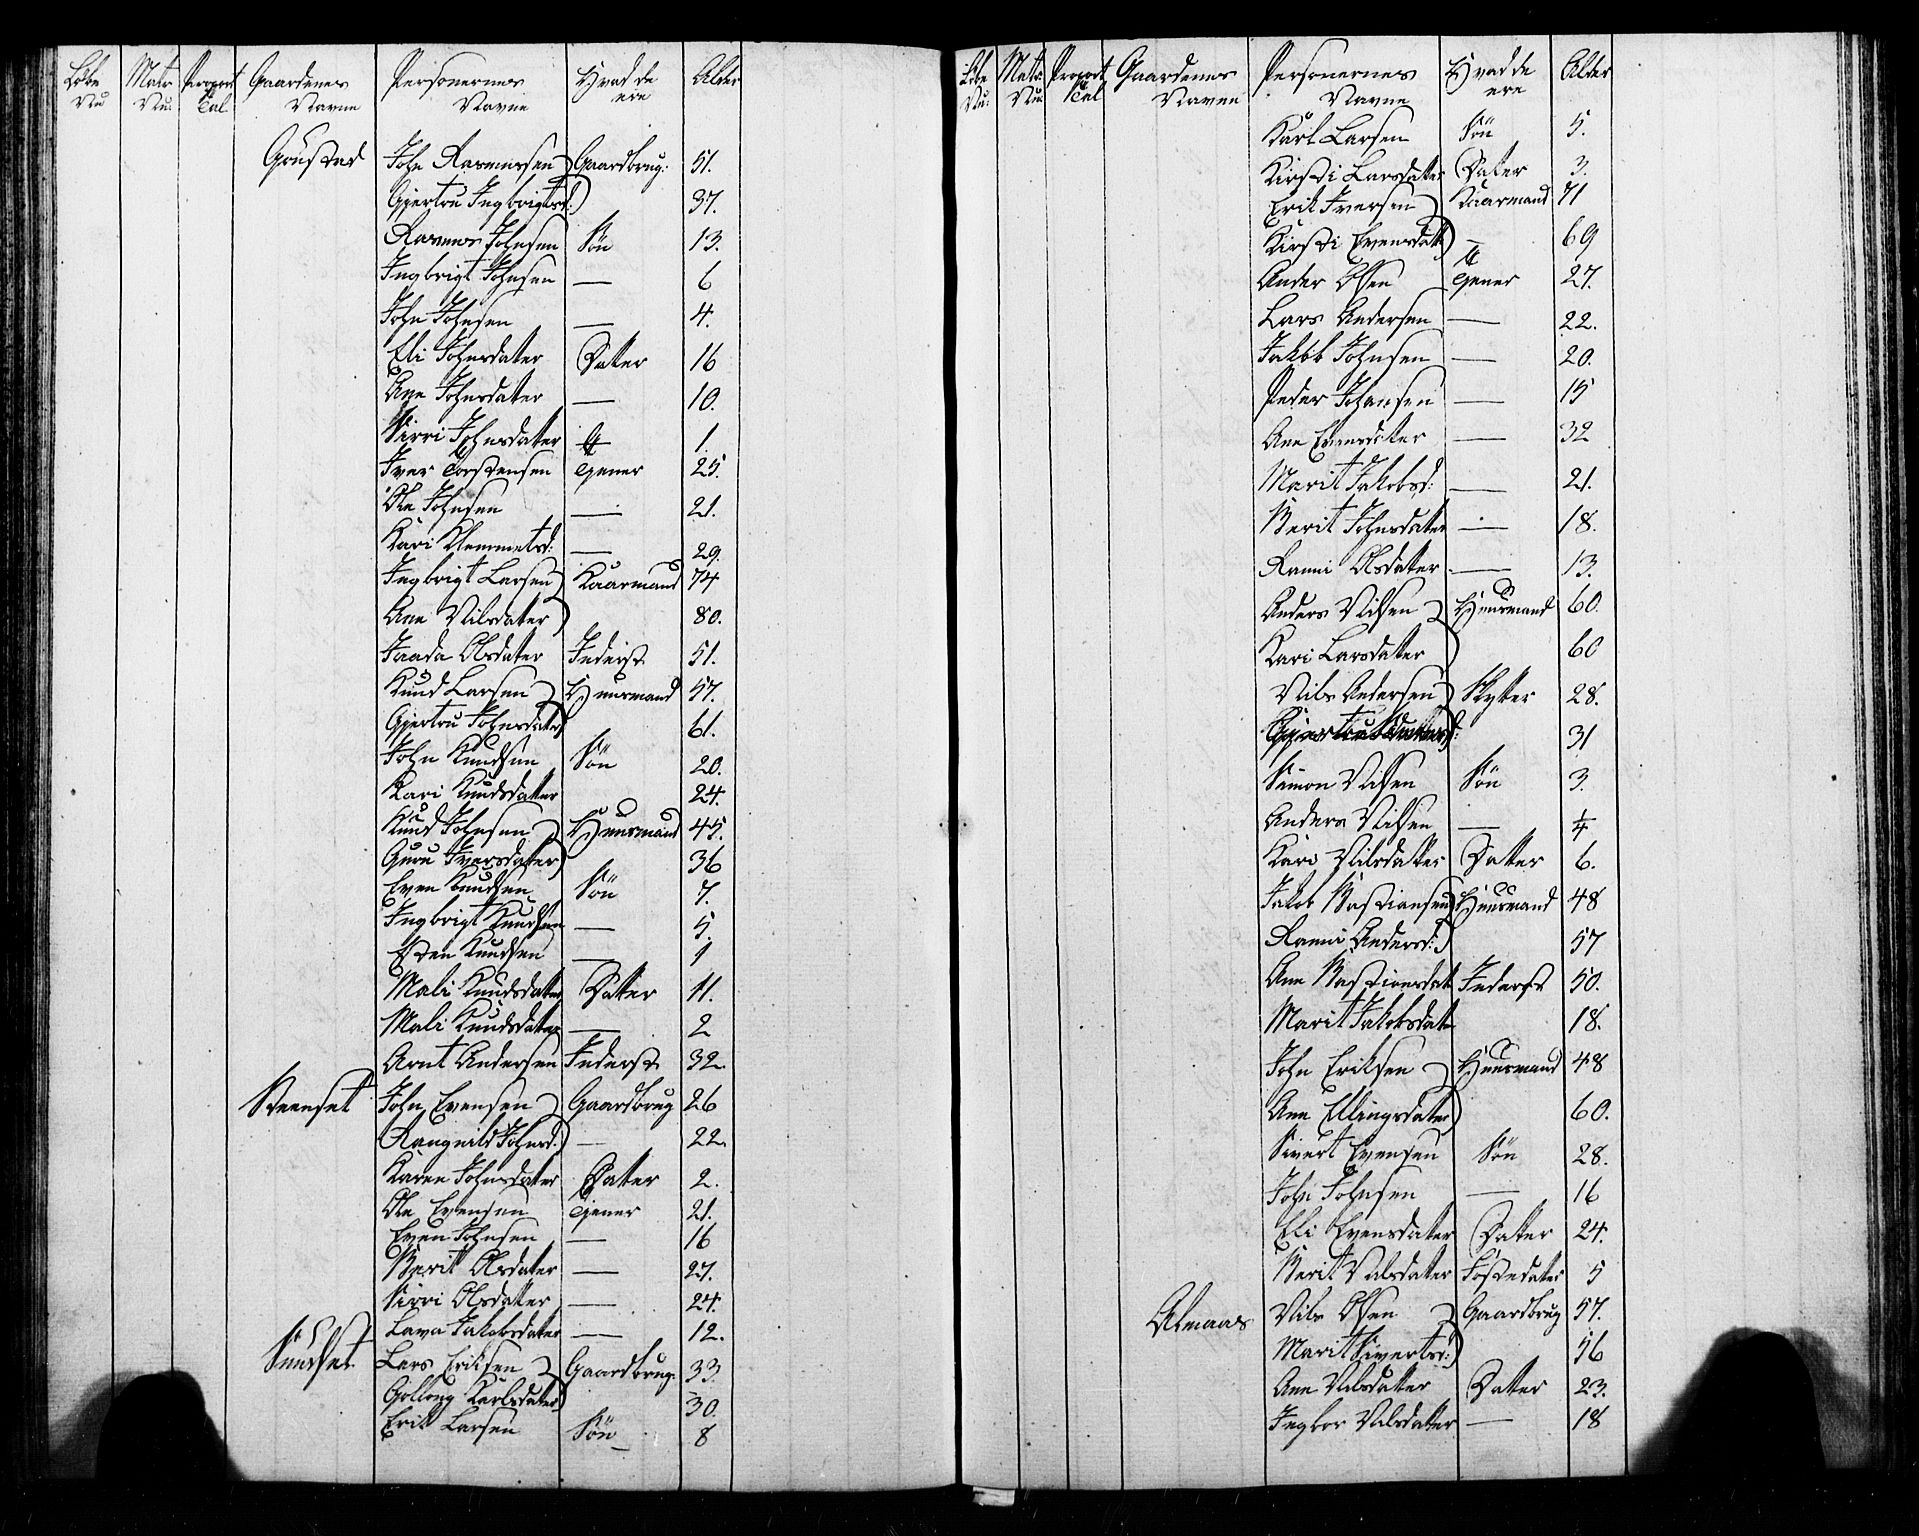 Løbe Nu Matr Nu: Proport Tal Gaardenes Navne Personernes Navne Hvad de ere Alder
Grustad John Rasmussen) Gaardbrug: 51.
Gjertru Ingbrigtsd:) 37.
Rasmus Johnsen Søn 13.
Ingbrigt Johnsen — 6
John Johnsen — 4.
Eli Johnsdater Datter 16
Ane Johnsdater — 10.
Sirri Johnsdatter 1.
Iver Torstensen Tjener 25.
Ole Johnsen — 21.
Kari Klemmetsd: — 29.
Ingbrigt Larsen) Kaarmand 74
Ane Nilsdater) 80.
Olsdater Inderst 51.
Knud Larsen) Huusmand 57.
Gjertru Johnsdater) 61.
John Knudsen Søn 20.
Kari Knudsdatter 24.
Knud Johnsen) Huusmand 45.
Guru Iversdater) 36
Even Knudsen Søn 7.
Ingbrigt Knudsen — 5.
Esten Knudsen — 1
Mali Knudsdatter Datter 11.
Mali Knudsdatter — 2
Arnt Andersen Inderst 32.
Steenset John Evensen) Gaardbrug 26
Rangnild Johnsd:) — 22.
Karen Johnsdater Datter 2.
Ole Evensen Tjener 21.
Even Johnsen — 16
Berit Olsdater — 27.
Sirri Olsdatter — 24.
Lava Jakobsdater — 12.
Sundset Lars Eriksen) Gaardbrug: 33.
Gollaug Karlsdater) 30.
Erik Larsen Søn 8
Løbe Nu: Matr: Nu: Proport Tal Gaardenes Navne Personernes Navne Hvad de ere Alder
Karl Larsen Søn 5.
Kirsti Larsdater Datter 3.
Erik Iversen) Kaarmand 71
Kirsti Evensdatt) — 69
Ander Olsen Tjener 27.
Lars Andersen — 22.
Jakob Johnsen — 20.
Peder Johansen — 15
Ane Evensdater — 32
Marit Jakobsd: — 21.
Berit Johnsdater — 18.
Ranni Olsdatter — 13.
Anders Nilsen) Huusmand 60.
Kari Larsdater) 60
Nils Andersen) Skytter 28.
31
Simon Nilsen Søn 3.
Anders Nilsen — ¼
Kari Nilsdatter Datter 6.
Jakob Bastiansen) Huusmand 48
Ranni Andersd:) 57
Ane Bastiansdat Inderst 50.
Marit Jakobsdatt 18.
John Eriksen) Huusmand 48
Ane Ellingsdater) 60.
Sivert Evensen Søn 28.
John Johnsen — 16
Eli Evensdater Datter 24.
Berit Nilsdatter Fostedater 5
Almaas Nils Olsen) Gaardbrug 57.
Marit Sivertsd:) 56
Ane Nilsdatter Datter 23.
Ingbor Nilsdatter — 18